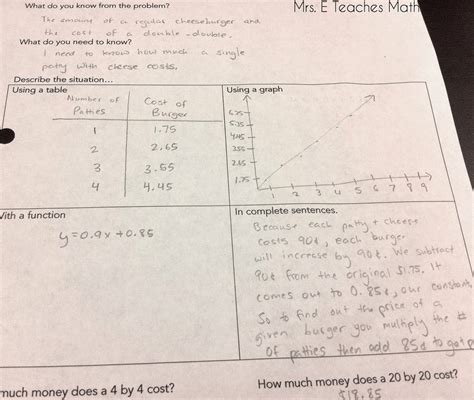 What do you know from the problem?
Mrs. E Teaches Math
The amount of a regular cheeseburger and
the cost of a double-double.
What do you need to know?
I need to know how much a single
patty with cheese costs.
Describe the situation...
Using a table
Number of Patties
Cost of Burger
1 1.75
2 2.65
3 3.55
4 4.45
Using a graph
5.35
4.45
3.55
2.65
1.75
1 2 3 4 5 6 7 8 9
With a function
y=0.9x+0.85
In complete sentences.
Because each patty + cheese
costs 90¢, each burger
will increase by 90¢. We subtract
90¢ from the original $1.75. It
comes out to 0.85¢, our constant.
So to find out the price of a
given burger you multiply the #
of patties then add 85¢ to get
much money does a 4 by 4 cost?
How much money does a 20 by 20 cost?
$18.85